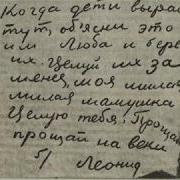 Когда дети выраст
тут, об'ясни это
им Люба и берег
их. Целуй их за
меня, моя милая
милая мамушка
Целую тебя. Прощай
прощай на веки
5/ Леонид